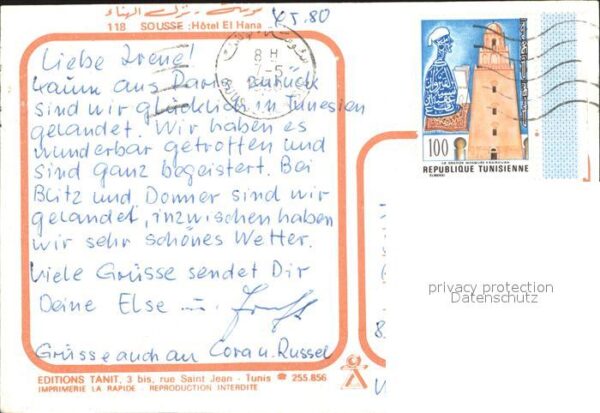 سوسة - نزل الهناء
118 SOUSSE : Hôtel El Hana
4.5.80
Liebe Irene!
Kaum aus Paris zurück
sind wir glücklich in Tunesien
gelandet. Wir haben es
wunderbar getroffen und
sind ganz begeistert. Bei
Blitz und Donner sind wir
gelandet, inzwischen haben
wir sehr schönes Wetter.
Viele Grüsse sendet Dir
Deine Else u.
Grüsse auch an Cora u. Russel
EDITIONS TANIT, 3 bis, rue Saint Jean - Tunis ☎ 255.856
IMPRIMERIE LA RAPIDE - REPRODUCTION INTERDITE
8 H
7-5
100
LA GRANDE MOSQUEE KAIROUAN
REPUBLIQUE TUNISIENNE
privacy protection
Datenschutz
8